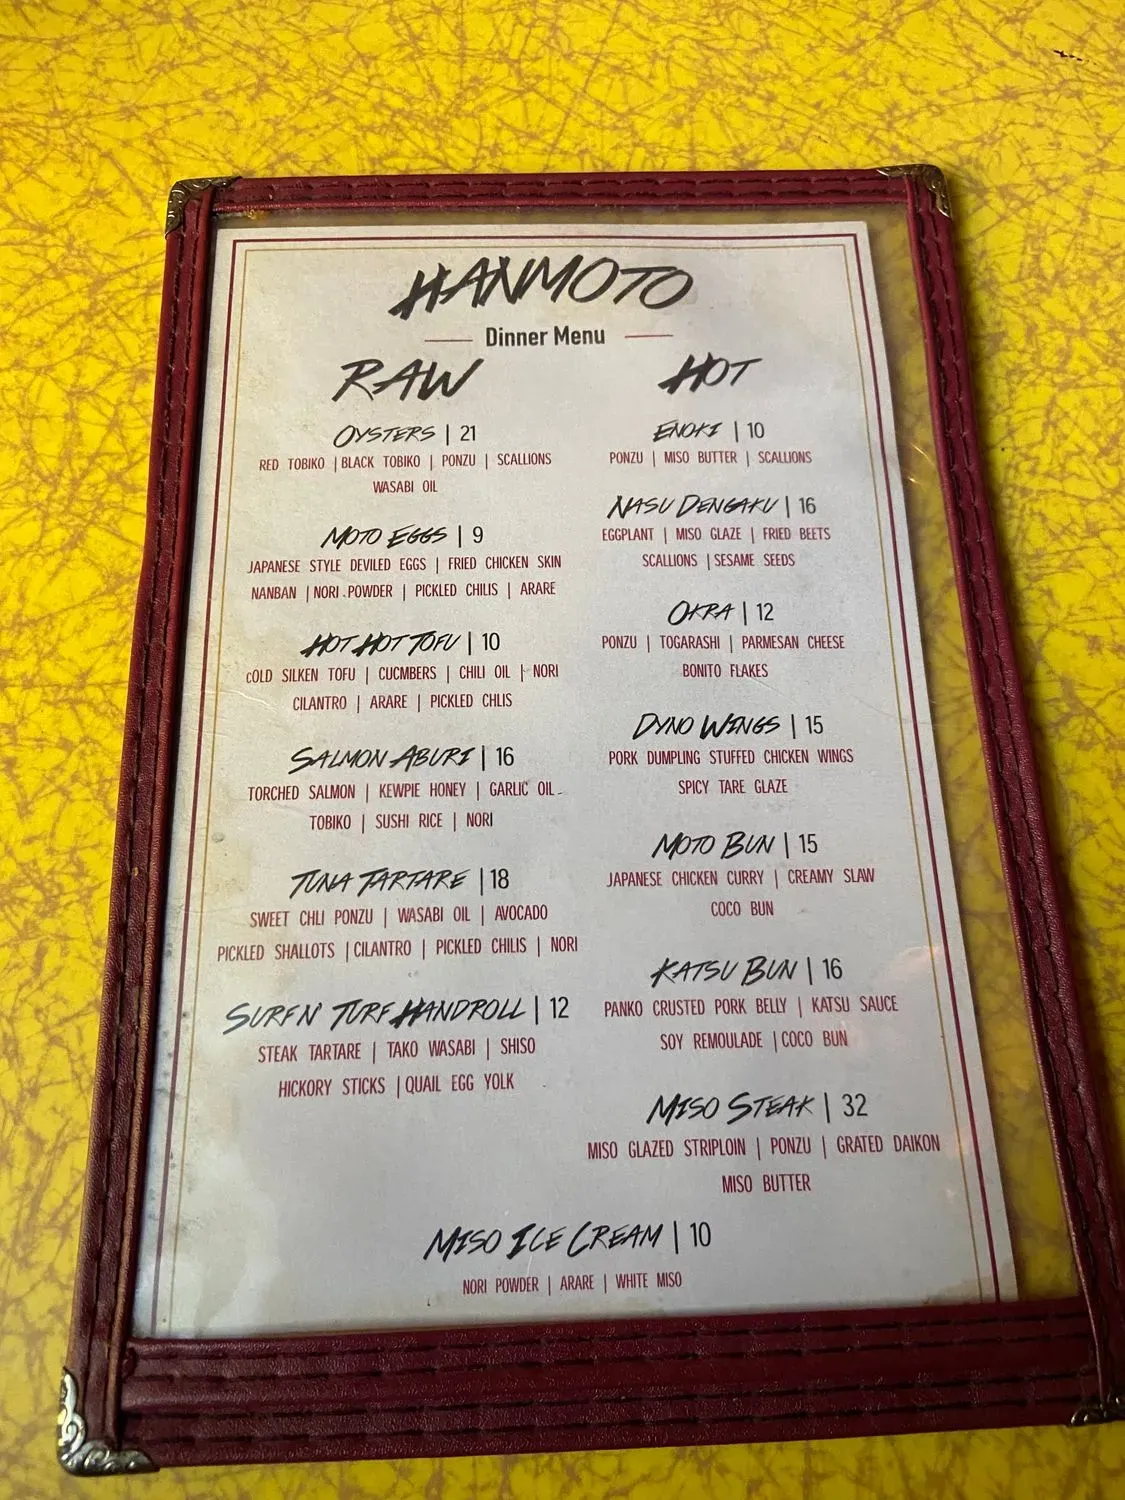 HANMOTO
Dinner Menu
RAW
OYSTERS | 21
RED TOBIKO | BLACK TOBIKO | PONZU | SCALLIONS
WASABI OIL
MOTO EGGS | 9
JAPANESE STYLE DEVILED EGGS | FRIED CHICKEN SKIN
NANBAN | NORI POWDER | PICKLED CHILIS | ARARE
HOT HOT TOFU | 10
COLD SILKEN TOFU | CUCMBERS | CHILI OIL | NORI
CILANTRO | ARARE | PICKLED CHLIS
SALMON ABURI | 16
TORCHED SALMON | KEWPIE HONEY | GARLIC OIL
TOBIKO | SUSHI RICE | NORI
TUNA TARTARE | 18
SWEET CHLI PONZU | WASABI OIL | AVOCADO
PICKLED SHALLOTS | CILANTRO | PICKLED CHILIS | NORI
SURF N' TURF HANDROLL | 12
STEAK TARTARE | TAKO WASABI | SHISO
HICKORY STICKS | QUAIL EGG YOLK
HOT
ENOKI | 10
PONZU | MISO BUTTER | SCALLIONS
NASU DENGAKU | 16
EGGPLANT | MISO GLAZE | FRIED BEETS
SCALLIONS | SESAME SEEDS
OKRA | 12
PONZU | TOGARASHI | PARMESAN CHEESE
BONITO FLAKES
DYNO WINGS | 15
PORK DUMPLING STUFFED CHICKEN WINGS
SPICY TARE GLAZE
MOTO BUN | 15
JAPANESE CHICKEN CURRY | CREAMY SLAW
COCO BUN
KATSU BUN | 16
PANKO CRUSTED PORK BELLY | KATSU SAUCE
SOY REMOULADE | COCO BUN
MISO STEAK | 32
MISO GLAZED STRIPLOIN | PONZU | GRATED DAIKON
MISO BUTTER
MISO ICE CREAM | 10
NORI POWDER | ARARE | WHITE MISO